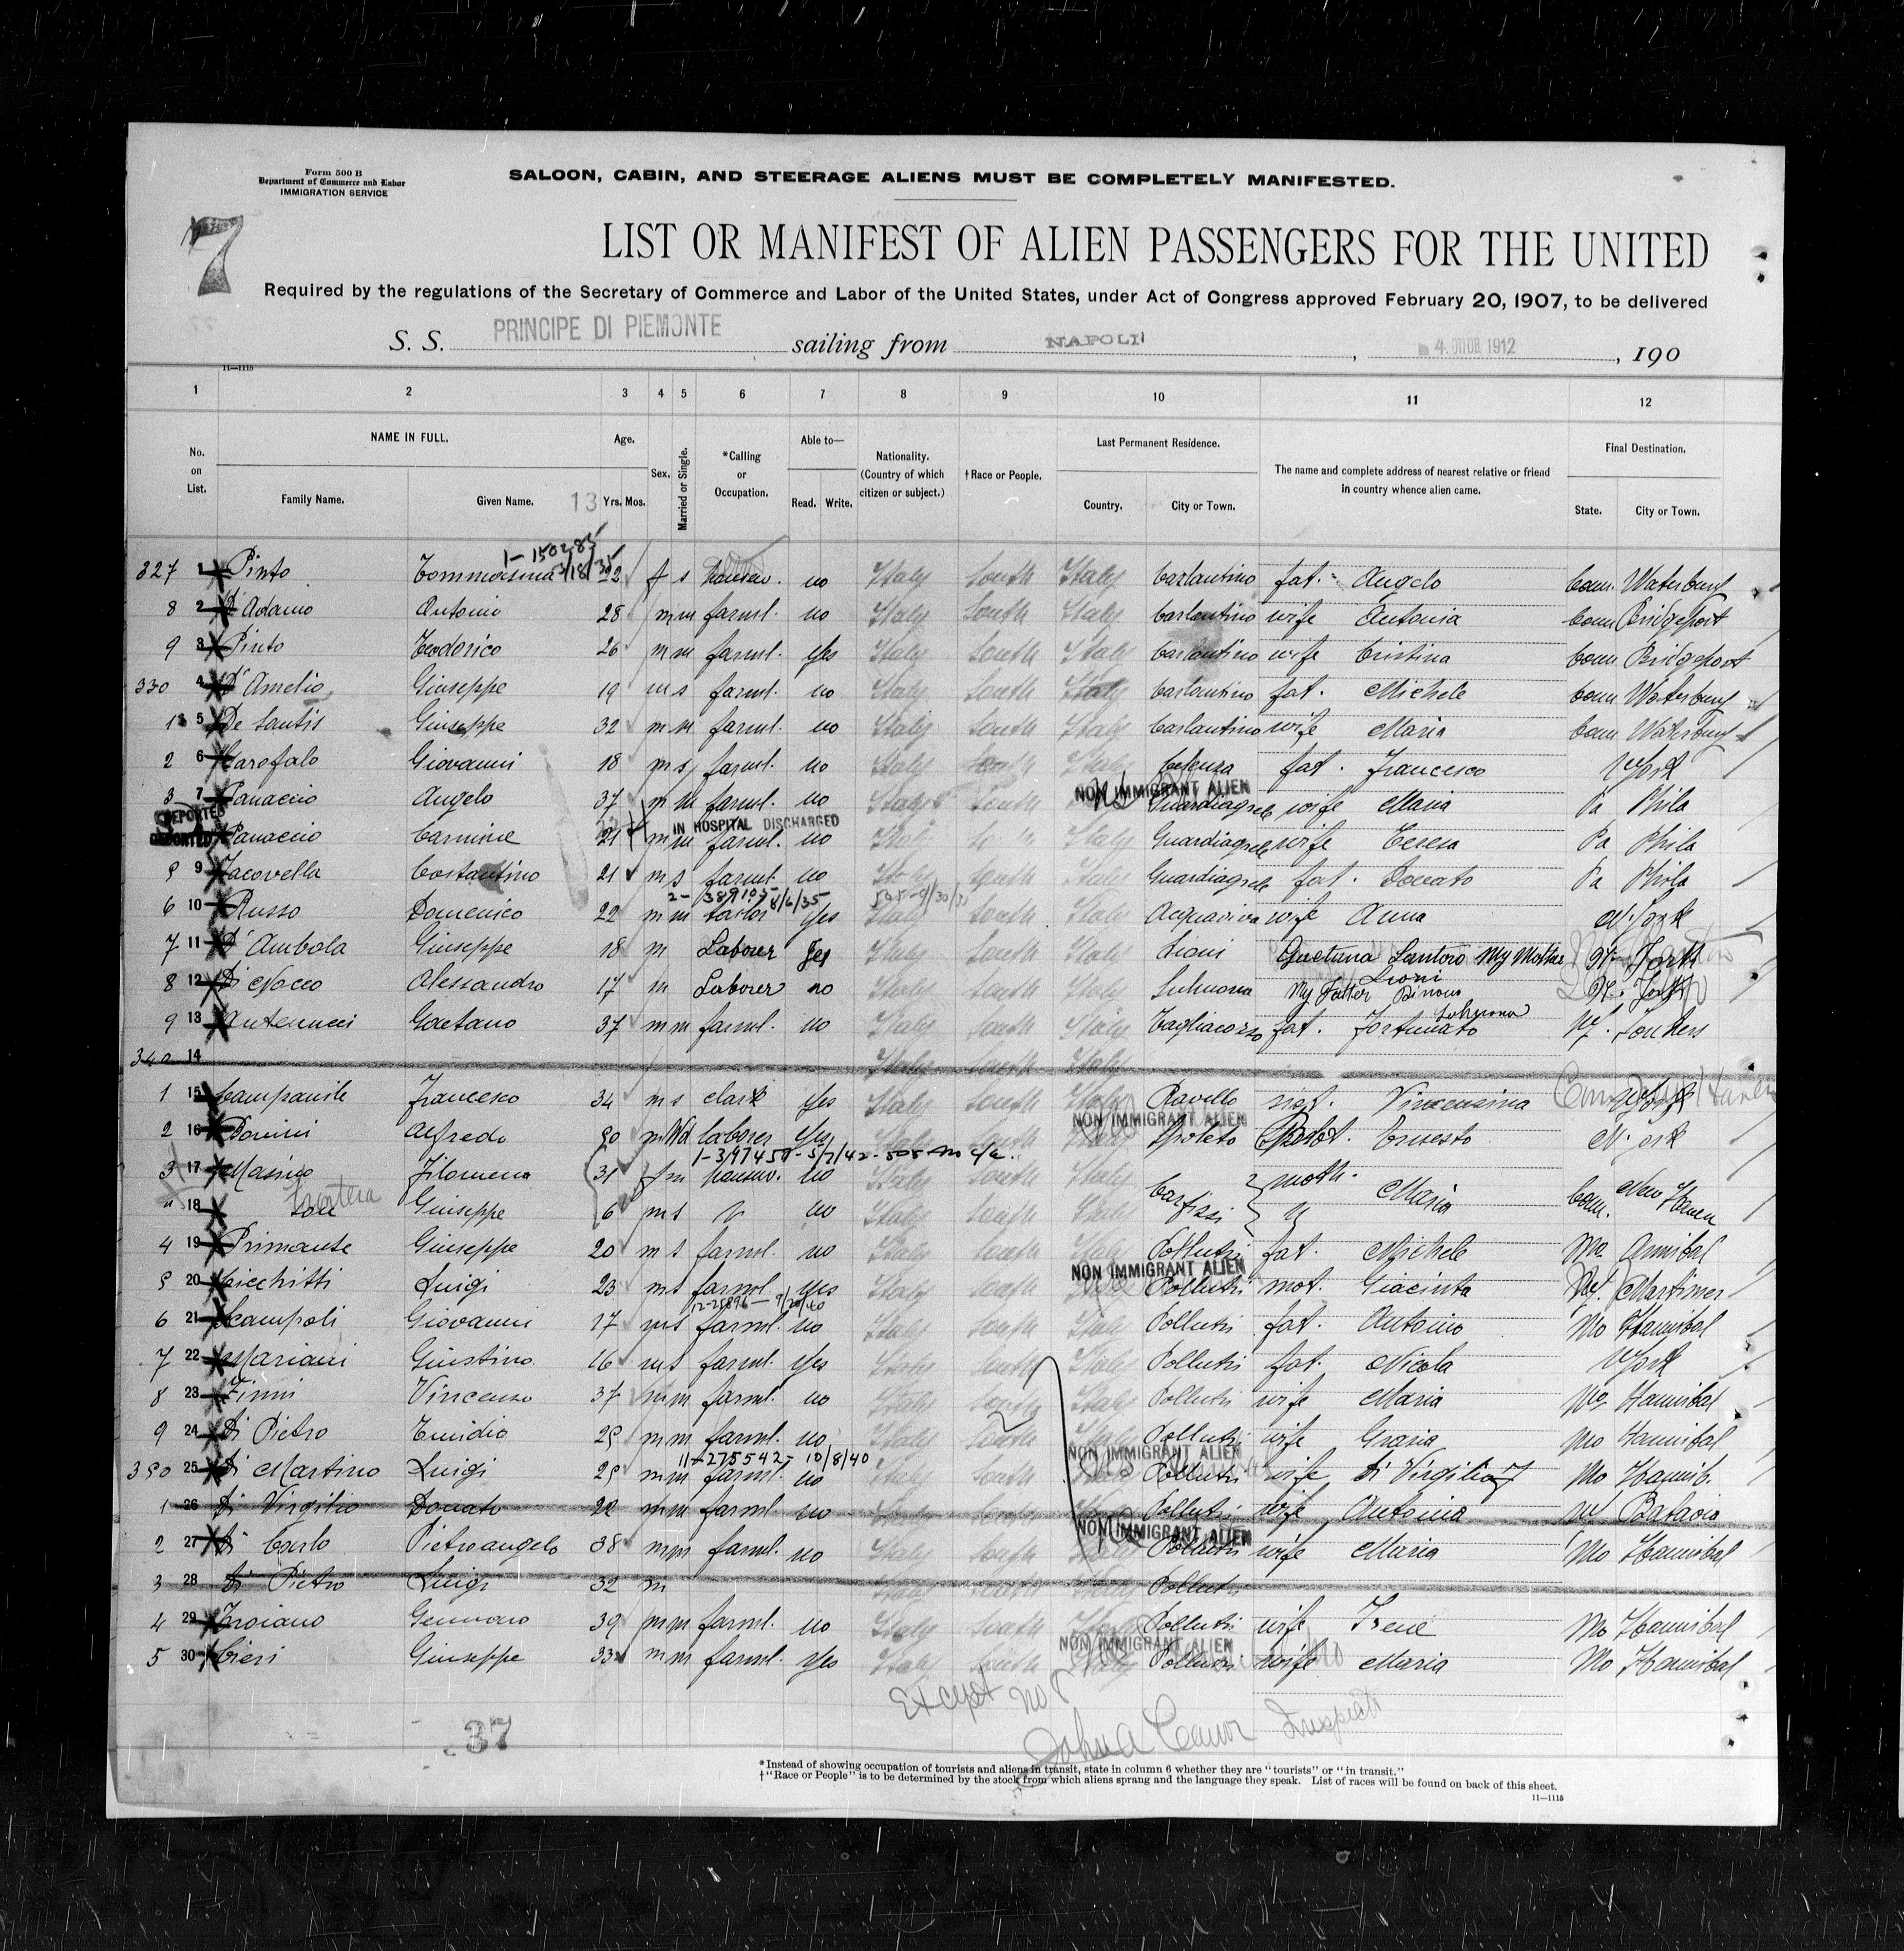 Form 500 B
Department of Commerce and Labor
IMMIGRATION SERVICE
SALOON, CABIN, AND STEERAGE ALIENS MUST BE COMPLETELY MANIFESTED.
7
LIST OR MANIFEST OF ALIEN PASSENGERS FOR THE UNITED
Required by the regulations of the Secretary of Commerce and Labor of the United States, under Act of Congress approved February 20, 1907, to be delivered
S. S. PRINCIPE DI PIEMONTE sailing from NAPOLI, 4 OTTOB 1912, 190
11—1115
1 2 3 4 5 6 7 8 9 10 11 12
No. on List. NAME IN FULL. Family Name. Given Name. 13 Age. Yrs. Mos. Sex. Married or Single. *Calling or Occupation. Able to— Read. Write. Nationality. (Country of which citizen or subject.) †Race or People. Last Permanent Residence. Country. City or Town. The name and complete address of nearest relative or friend in country whence alien came. Final Destination. State. City or Town.
1-150285
327 1 Pinto Tommasina 3/18/35 22 f s no Italy South Italy Carlantino fat. Angelo Conn. Waterbury
8 2 D'Adamo Antonio 28 m m farml. no Italy South Italy Carlantino wife Antonia Conn Bridgeport
9 3 Pinto Teodorico 26 m m farml. Yes Italy South Italy Carlantino wife Cristina Conn Bridgeport
330 4 D'Amelio Giuseppe 19 m s farml. no Italy South Italy Carlantino fat. Michele Conn Waterbury
1 5 De Santis Giuseppe 32 m m farml. no Italy South Italy Carlantino wife Maria Conn Waterbury
2 6 Carofalo Giovanni 18 m s farml. no Italy South Italy Celenza fat. Francesco York
NON IMMIGRANT ALIEN
3 7 Panaccio Angelo 37 m m farml. no Italy South Guardiagrele wife Maria Pa Phila
DEPORTED
IN HOSPITAL DISCHARGED
DEPORTED Panaccio Carmine 21 m m farml. no Guardiagrele wife Teresa Pa Phila
9 Iacovella Costantino 21 m s farml. no Italy South Italy Guardiagrele fat. Donato Pa Phila
2- 389105- 8/6/35
6 10 Russo Domenico 22 m m tailor Yes Italy South Italy Acquaviva wife Anna N. York
7 11 D'Ambola Giuseppe 18 m Laborer Yes Italy South Italy Lioni Gaetana Santoro My Mother N. York
Lioni
8 12 Di Nocco Alessandro 17 m Laborer no Italy South Italy Sulmona My Father N. York
Sulmona
9 13 Antenucci Gaetano 37 m m farml. no Italy South Italy Tagliacozzo fat. Fortunato Yonkers
340 14 Italy South Italy
1 15 Campanile Francesco 34 m s clark Yes Italy South Italy Ravello sist. Vincensina York
NON IMMIGRANT ALIEN
2 16 Alfredo m Wd laborer Yes Italy South Spoleto Ernesto N. York
1-397450-5/7/42-505
3 17 Masino Filomena 31 f m no Italy South Italy Carfizzi moth. Maria Conn. New Haven
18 Giuseppe 6 m s no Italy South Italy
4 19 Primante Giuseppe 20 m s farml. no Italy South Italy Pollutri fat. Michele Mo Annibal
NON IMMIGRANT ALIEN
5 20 Cicchitti Luigi 23 m s farml. yes Italy South Pollutri mot. Giacinta
12-25896- 9/20/40
6 21 Campoli Giovanni 17 m s farml. no Italy South Italy Pollutri fat. Antonio Mo Hannibal
7 22 Mariani Giustino 16 m s farml. Yes Italy South Italy Pollutri fat. Nicola York
8 23 Zinni Vincenzo 37 m m farml. no Italy South Italy Pollutri wife Maria Mo Hannibal
9 24 Di Pietro Emidio 25 m m farml. no Italy South Italy Pollutri wife Grazia Mo Hannibal
11-275542- 10/8/40
NON IMMIGRANT ALIEN
350 25 Di Martino Luigi 25 m m farml. no Italy South Pollutri wife Di Virgilio Mo Hannib.
1 26 Di Virgilio Donato 22 m m farml. no Pollutri wife Antonia Batavia
NON IMMIGRANT ALIEN
2 27 Di Carlo Pietroangelo 38 m m farml. no Italy South Italy Pollutri wife Maria Mo Hannibal
3 28 Di Pietro Luigi 32 m Italy South Italy Pollutri
4 29 Troiano Gennaro 39 m m farml. no Italy South Italy Pollutri wife Irene Mo Hannibal
NON IMMIGRANT ALIEN
5 30 Cieri Giuseppe 33 m m farml. Yes Italy South Italy Pollutri wife Maria Mo Hannibal
Except no 8
John A Inspector
37
*Instead of showing occupation of tourists and aliens in transit, state in column 6 whether they are "tourists" or "in transit."
†"Race or People" is to be determined by the stock from which aliens sprang and the language they speak. List of races will be found on back of this sheet.
11—1115